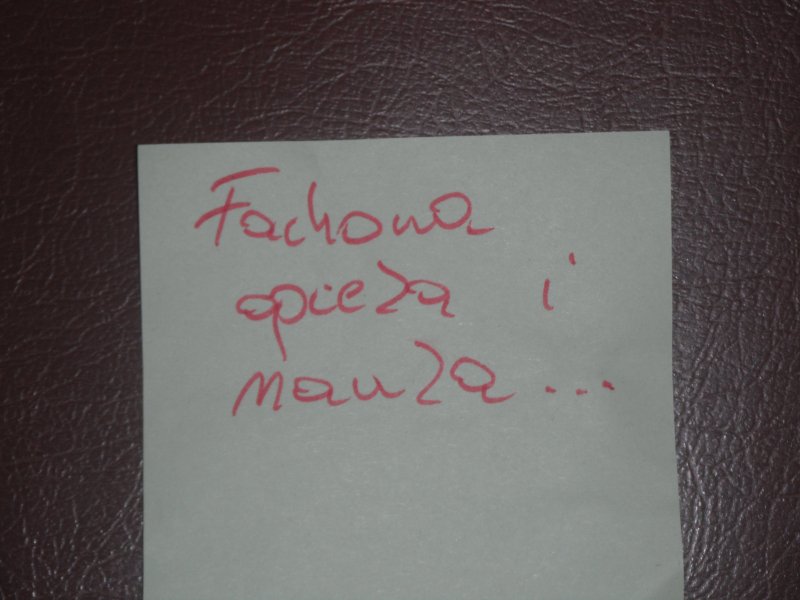 Fachowa
opieka i
nauka...